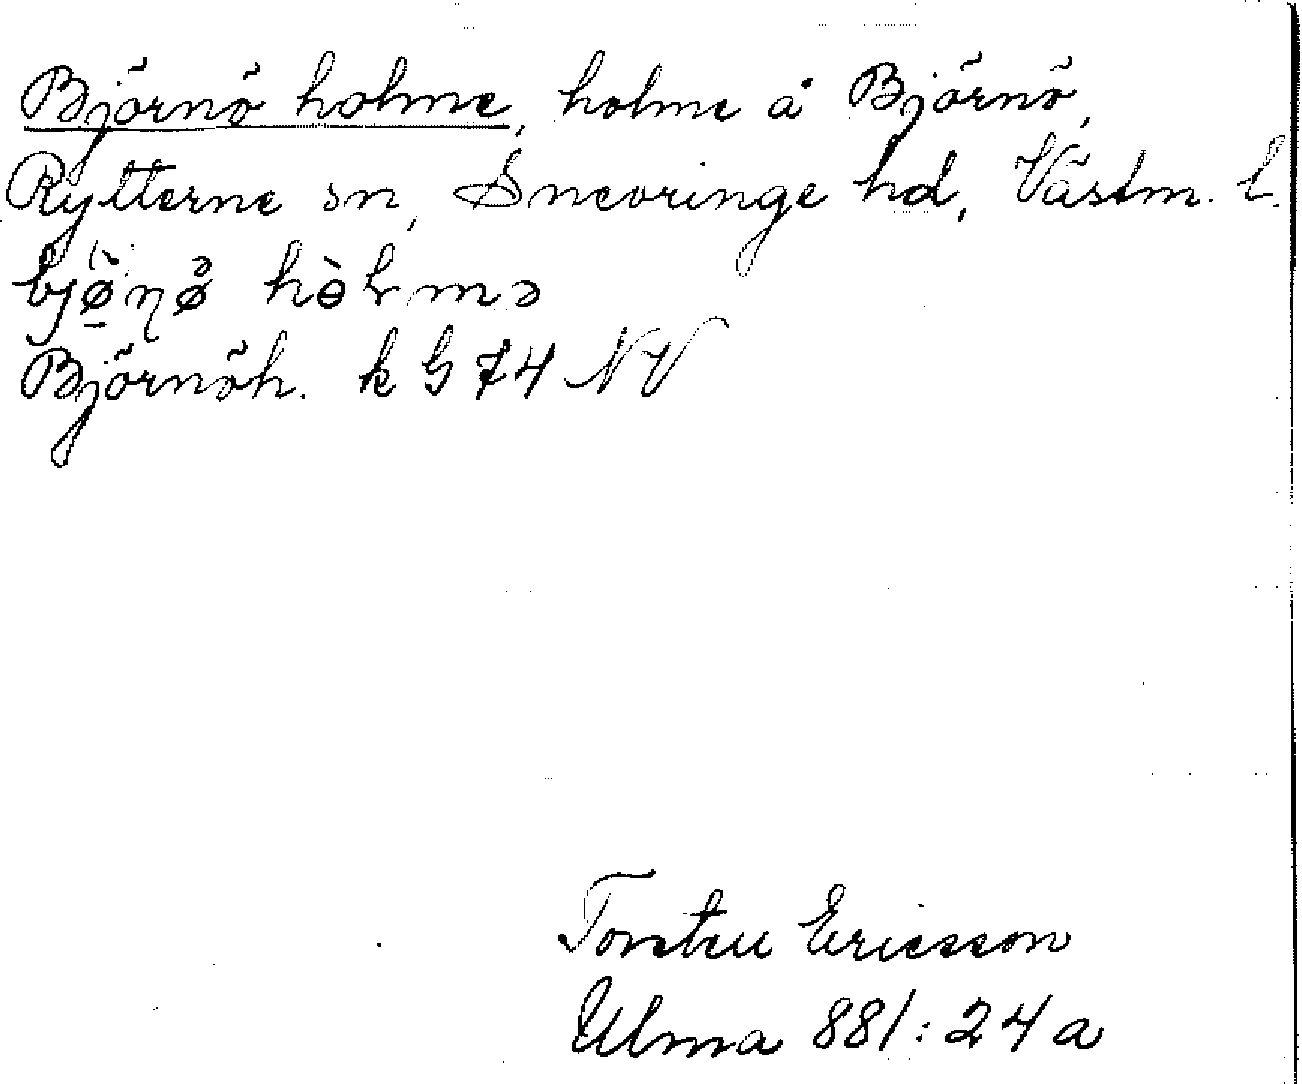 Björnö holme, holme å Björnö,
Rytterne sn, Snevringe hd, Västm. l.
Björnöh. k G 74 NV
Torsten Ericsson
Ulma 881:24a